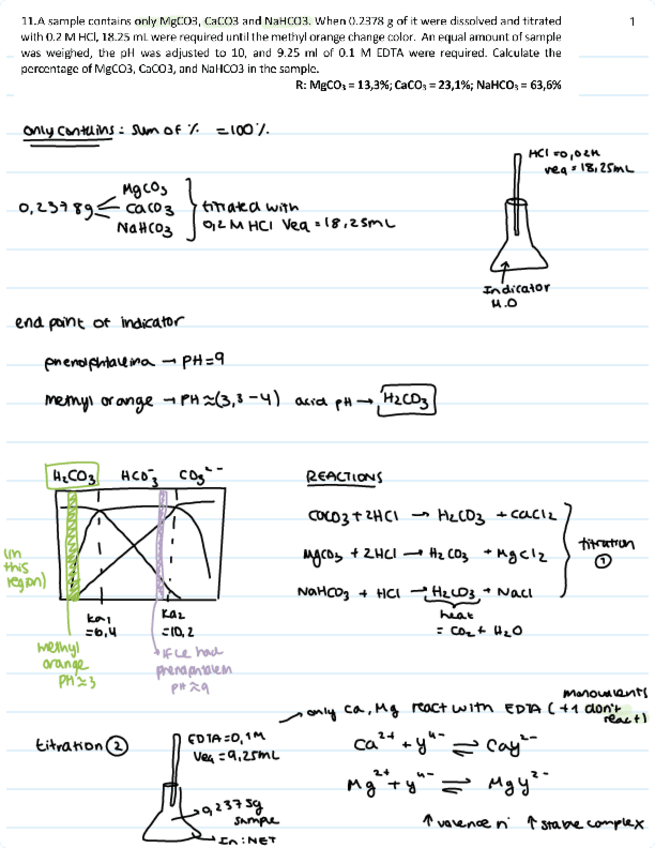 11.A sample contains only MgCO3, CaCO3 and NaHCO3. When 0.2378 g of it were dissolved and titrated
1
with 0.2 M HCl, 18.25 mL were required until the methyl orange change color. An equal amount of sample
was weighed, the pH was adjusted to 10, and 9.25 ml of 0.1 M EDTA were required. Calculate the
percentage of MgCO3, CaCO3, and NaHCO3 in the sample.
R: MgCO₃ = 13,3%; CaCO₃ = 23,1%; NaHCO₃ = 63,6%
only contains : sum of % = 100%.
HCl = 0,02M
veq = 18,25mL
0,2378g
MgCO3
CaCO3
NaHCO3
titrated with
0,2 M HCl Veq = 18,25mL
Indicator
M.O
end point of indicator
phenolphtaleina → PH=9
methyl orange → PH ≈ (3,3-4) acid pH → H2CO3
H2CO3 HCO3⁻ CO3²⁻
(in
this
region)
ka1
=6,4
ka2
=10,2
methyl
orange
PH≈3
if we had
PH≈9
REACTIONS
CaCO3 + 2HCl → H2CO3 + CaCl2
MgCO3 + 2HCl → H2CO3 + MgCl2
NaHCO3 + HCl → H2CO3 + NaCl
heat
= CO2 + H2O
titration
①
titration ②
EDTA = 0,1M
Veq = 9,25mL
sample
In : NET
monovalents
only Ca, Mg react with EDTA (+1 don't
react)
Ca²⁺ + y⁴⁻ ⇌ Cay²⁻
Mg²⁺ + y⁴⁻ ⇌ Mgy²⁻
↑ valence n° ↑ stable complex